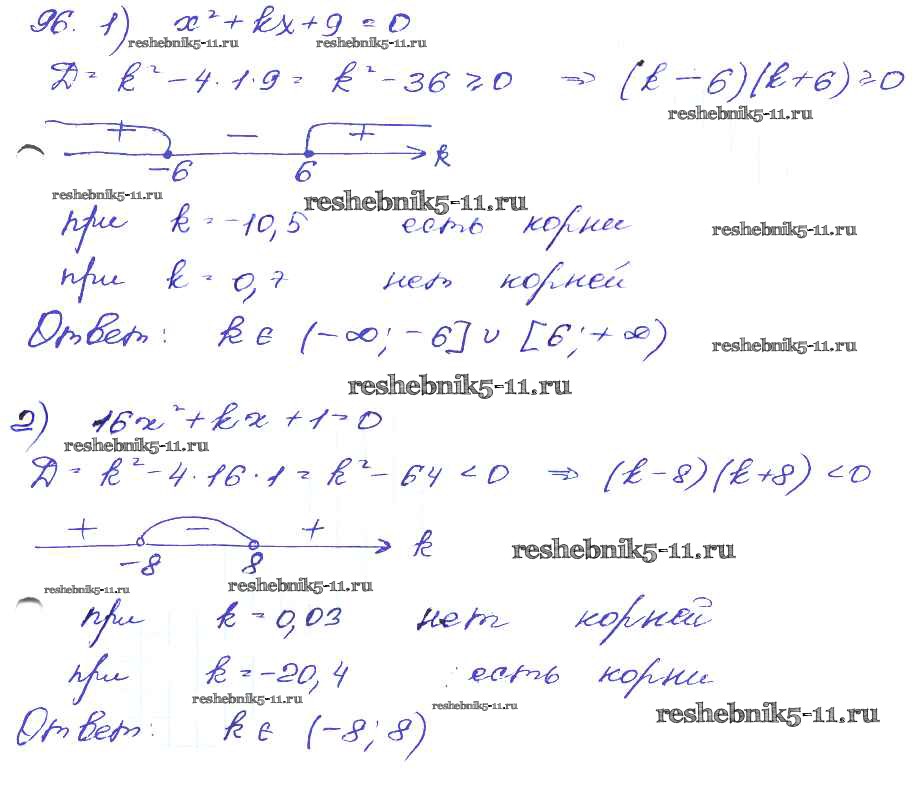 96. 1) x² + kx + 9 = 0
reshebnik5-11.ru reshebnik5-11.ru
D = k² - 4·1·9 = k² - 36 ≥ 0 ⇒ (k - 6)(k + 6) ≥ 0
reshebnik5-11.ru
+ − +
-6 6 k
reshebnik5-11.ru reshebnik5-11.ru
при k = -10,5 есть корни reshebnik5-11.ru
при k = 0,7 нет корней
Ответ: k ∈ (-∞; -6] ∪ [6; +∞) reshebnik5-11.ru
reshebnik5-11.ru
2) 16x² + kx + 1 = 0
reshebnik5-11.ru
D = k² - 4·16·1 = k² - 64 < 0 ⇒ (k-8)(k+8) < 0
+ − +
-8 8 k reshebnik5-11.ru
reshebnik5-11.ru reshebnik5-11.ru
при k = 0,03 нет корней
при k = -20,4 есть корни
reshebnik5-11.ru reshebnik5-11.ru
Ответ: k ∈ (-8; 8) reshebnik5-11.ru